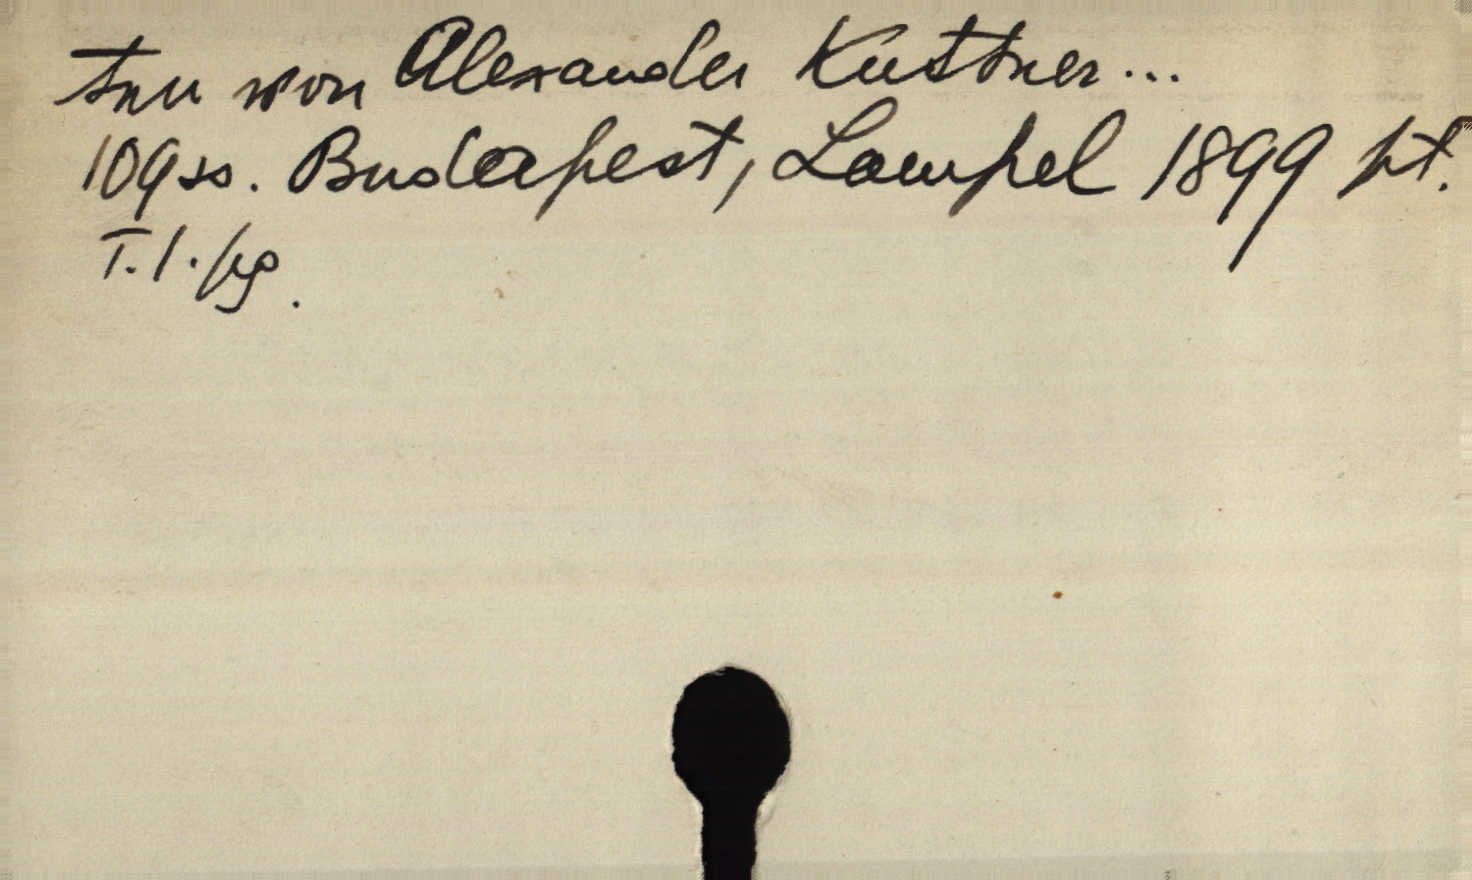 ten von Alexander Küttner...
109 ss. Budapest, Lampel 1899 pt.
T. 1. pg.